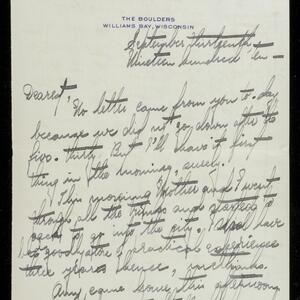 THE BOULDERS
WILLIAMS BAY, WISCONSIN
September thirteenth
Nineteen hundred ten –
Dearest, No letter came from you to-day
because we did not go down after the
five-thirty. But I'll have it first
thing in the morning, surely.
This morning Mother and I went
through all the things and started
to go into the city, have
practical experience
three years hence,
Amy came home this afternoon